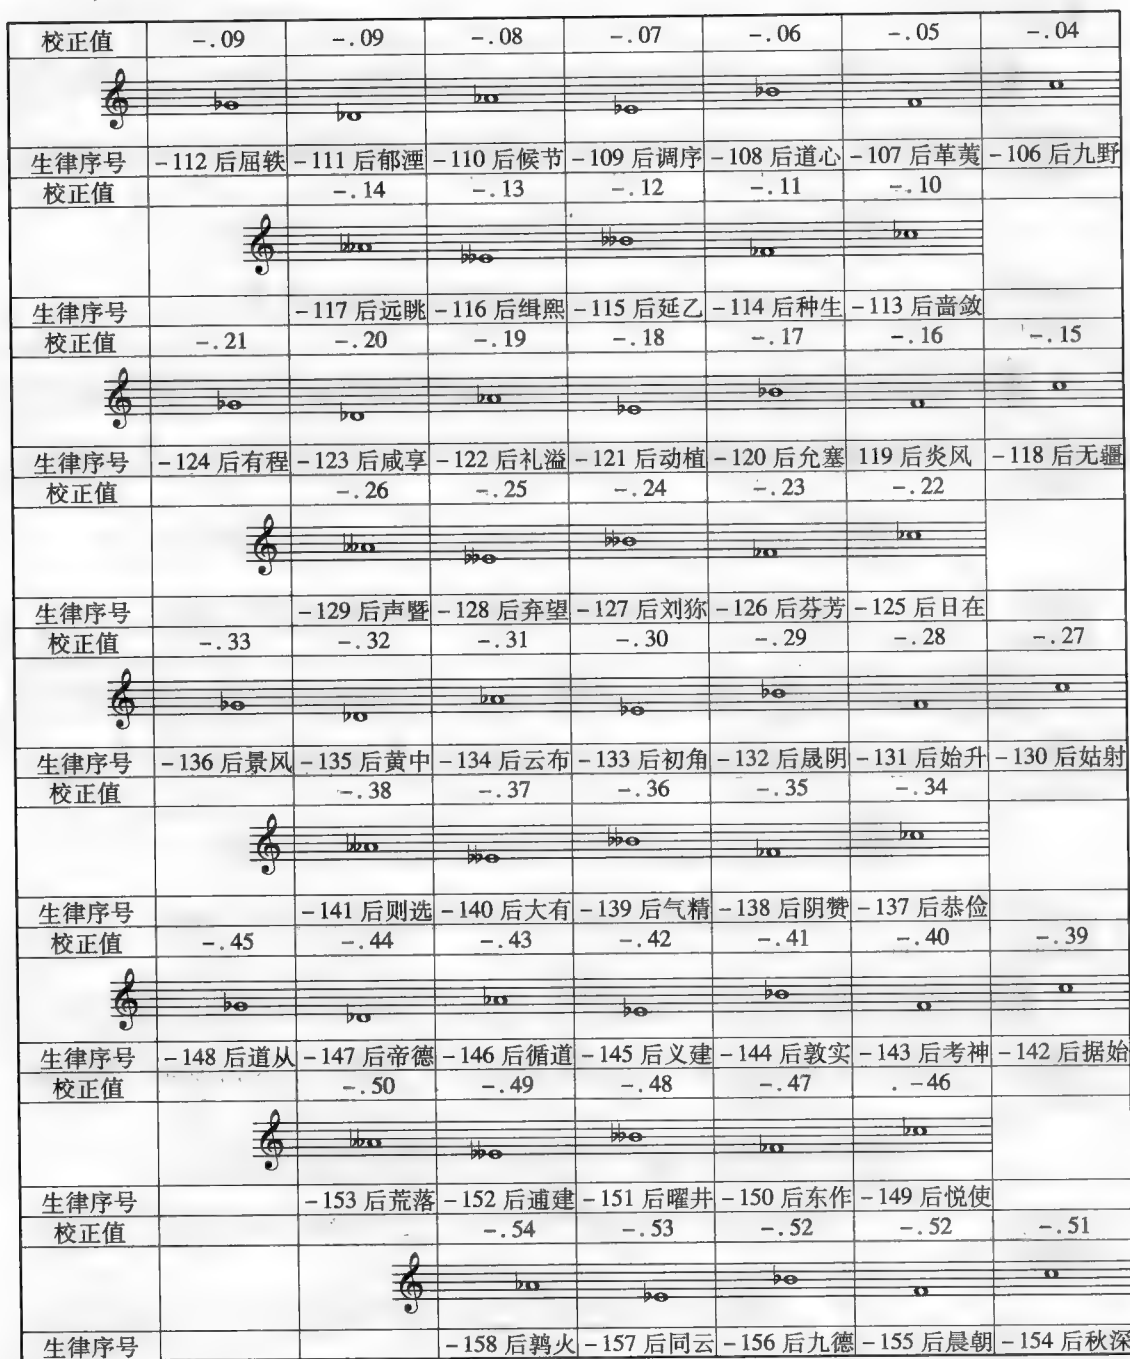 校正值 -.09 -.09 -.08 -.07 -.06 -.05 -.04
生律序号 -112 后屈轶 -111 后郁湮 -110 后候节 -109 后调序 -108 后道心 -107 后革荑 -106 后九野
校正值 -.14 -.13 -.12 -.11 -.10
生律序号 -117 后远眺 -116 后缉熙 -115 后延乙 -114 后种生 -113 后啬敛
校正值 -.21 -.20 -.19 -.18 -.17 -.16 -.15
生律序号 -124 后有程 -123 后咸享 -122 后礼溢 -121 后动植 -120 后允塞 119 后炎风 -118 后无疆
校正值 -.26 -.25 -.24 -.23 -.22
生律序号 -129 后声暨 -128 后弃望 -127 后刘狝 -126 后芬芳 -125 后日在
校正值 -.33 -.32 -.31 -.30 -.29 -.28 -.27
生律序号 -136 后景风 -135 后黄中 -134 后云布 -133 后初角 -132 后晟阴 -131 后始升 -130 后姑射
校正值 -.38 -.37 -.36 -.35 -.34
生律序号 -141 后则选 -140 后大有 -139 后气精 -138 后阴赞 -137 后恭俭
校正值 -.45 -.44 -.43 -.42 -.41 -.40 -.39
生律序号 -148 后道从 -147 后帝德 -146 后循道 -145 后义建 -144 后敦实 -143 后考神 -142 后据始
校正值 -.50 -.49 -.48 -.47 .-46
生律序号 -153 后荒落 -152 后逋建 -151 后曜井 -150 后东作 -149 后悦使
校正值 -.54 -.53 -.52 -.52 -.51
生律序号 -158 后鹑火 -157 后同云 -156 后九德 -155 后晨朝 -154 后秋深